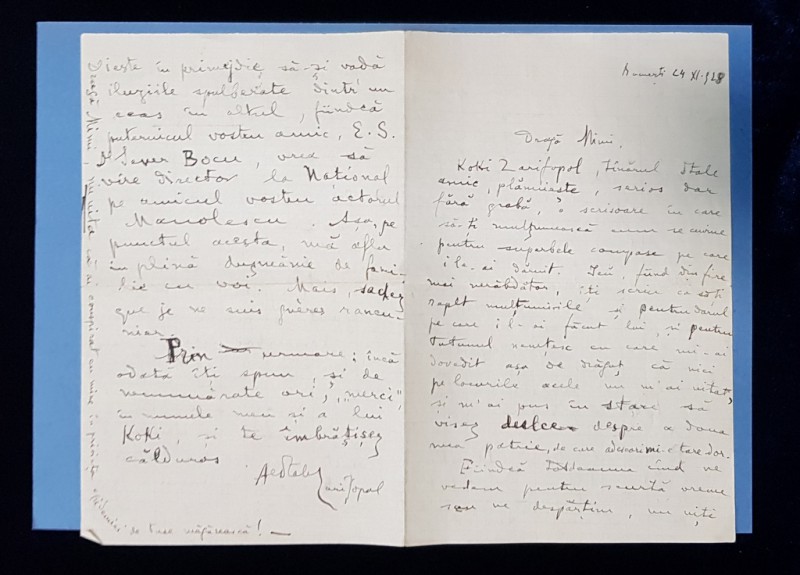 București 24 XI 928
Dragă Mimi,
Koki Zarifopol, tînărul d-tale
amic, plămăiaște, serios dar
fără grabă, o scrisoare în care
să-ți mulțumească cum se cuvine
pentru superbele compase pe care
i le-ai dăruit. Eu, fiind din fire
mai nerăbdător, îți scriu ca să-ți
rapăt mulțumirile și pentru darul
pe care i l-ai făcut lui, și pentru
tutunul nemțesc cu care mi-ai
dovedit așa de drăguț că nici
pe locurile acele nu m'ai uitat
și m'ai pus în stare să
visez despre a doua
mea patrie, de care adeseori mi-e tare dor.
Fiindcă totdeauna cînd ne
vedem pentru scurtă vreme
sau ne despărțim, nu uiți
în primejdie să-și vadă
iluziile spulberate dintr'un
ceas în altul, fiindcă
puternicul vostru amic, E. S.
D-l Sever Bocu, vrea să
vire director la Național
pe amicul vostru actorul
Manolescu. Așa, pe
punctul acesta, mă aflu
în plină dușmănie de fami-
lie cu voi. Mais, sachez
que je ne suis guères rancu-
nier.
Prin urmare: încă
odată îți spun, și de
nenumărate ori, "merci",
în numele meu și a lui
Koki, și te îmbrățișez
călduros
Zarifopol
dragă Mimi, nu uita că ai conspirat cu mine în privința
de tuse măgărească! —